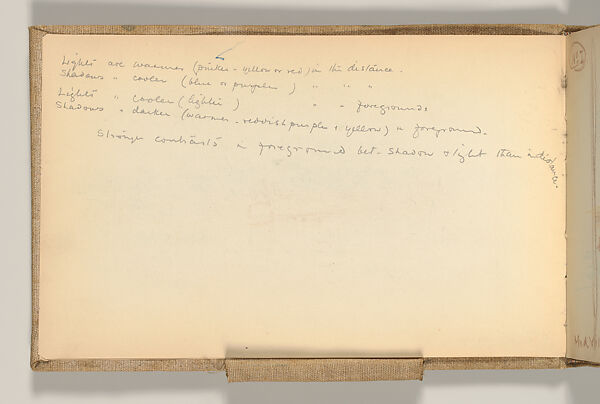 Lights are warmer (pinker - yellow or red) in the distance.
Shadows " cooler (blue or purple) " " "
Lights " cooler (lighter) " " foregrounds
Shadows " darker (warmer - reddish purple & yellow) " foreground.
Stronger contrasts in foreground bet. shadow & light than in distance.